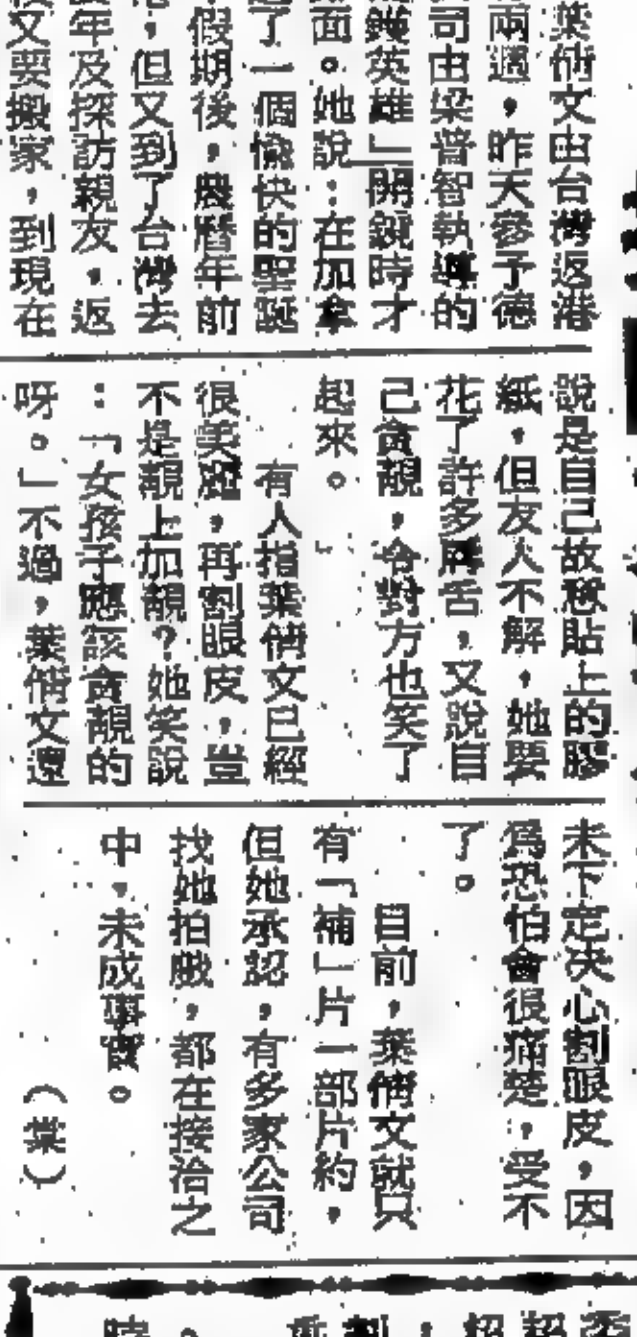 葉倩文由台灣返港
兩週，昨天參予德
司由梁普智執導的
英雄」開鏡時才
面。她說：在加拿
了一個愉快的聖誕
假期後，農曆年前
，但又到了台灣去
年及探訪親友，返
又要搬家，到現在
說是自己故意貼上的膠
紙，但友人不解，她要
花了許多脣舌，又說自
己貪靚，令對方也笑了
起來。
有人指葉倩文已經
很美麗，再割眼皮，豈
不是靚上加靚？她笑說
：「女孩子應該貪靚的
呀。」不過，葉倩文還
未下定決心割眼皮，因
爲恐怕會很痛楚，受不
了。
目前，葉倩文就只
有「補」片一部片約，
但她承認，有多家公司
找她拍戲，都在接洽之
中，未成事實。
（葉）